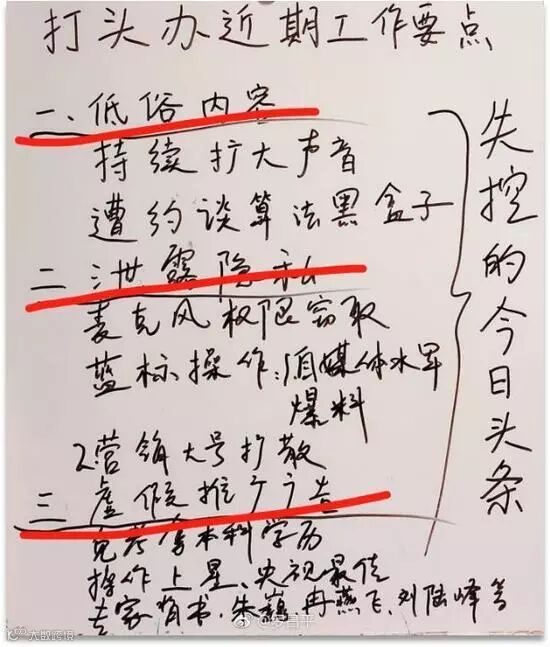 打头办近期工作要点
一、低俗内容
持续扩大声音
遭约谈算法黑盒子
二泄露隐私
麦克风权限窃取
蓝标操作:1自媒体水军
爆料
2.营销大号扩散
三虚假推广广告
免考拿本科学历
操作上星、央视最佳
专家背书.朱巍、冉燕飞、刘陆峰等
失控的今日头条
大数跨境